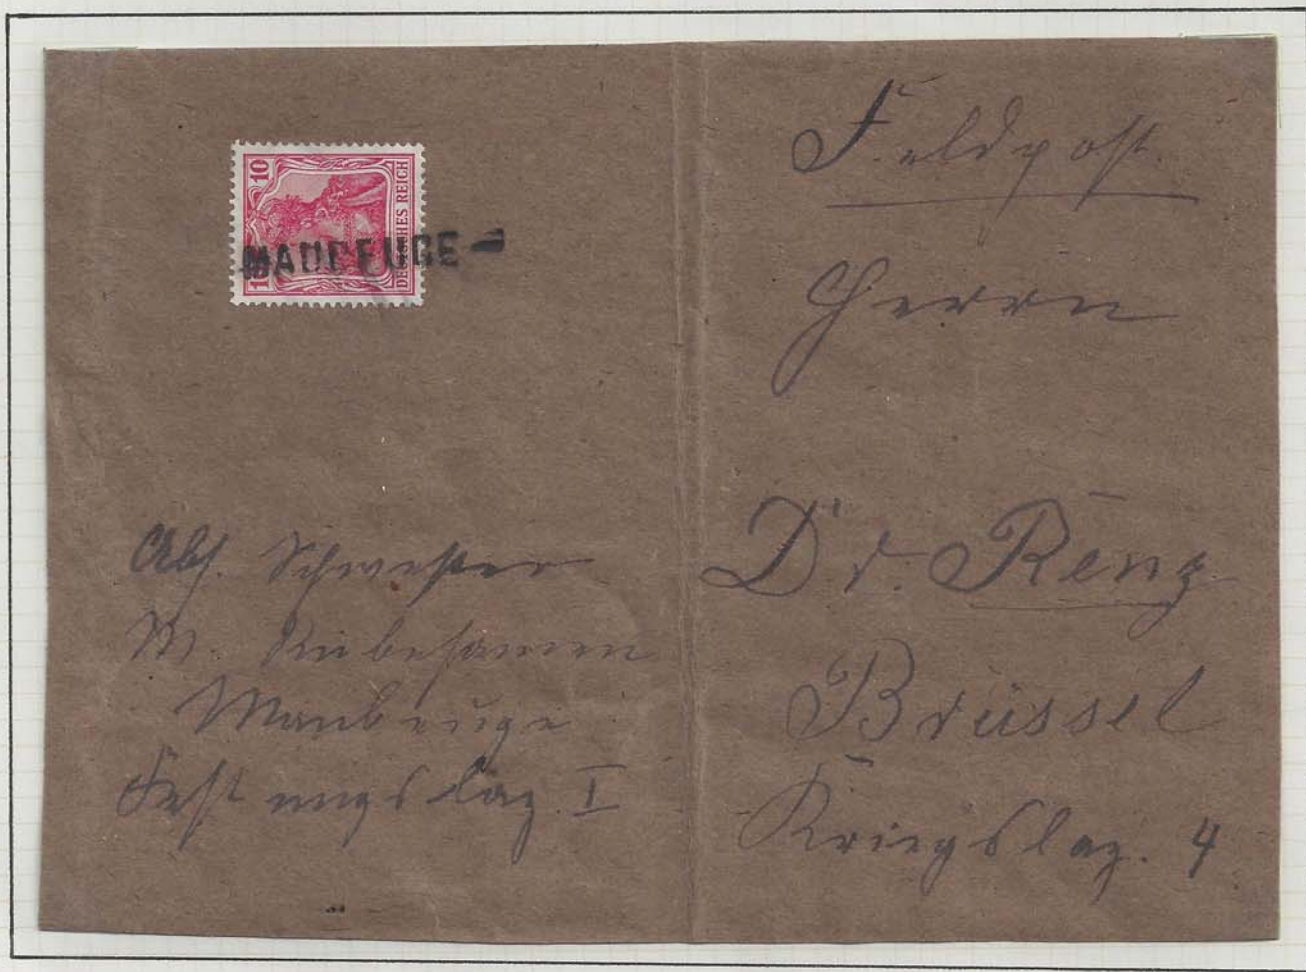 10
DEUTSCHES REICH
MAUBEUGE
Feldpost.
Herrn
Dr. Renz
Brüssel
Kriegslaz. 4
Abs. Schwester
M. Rübesamen
Maubeuge
Festungslaz. I